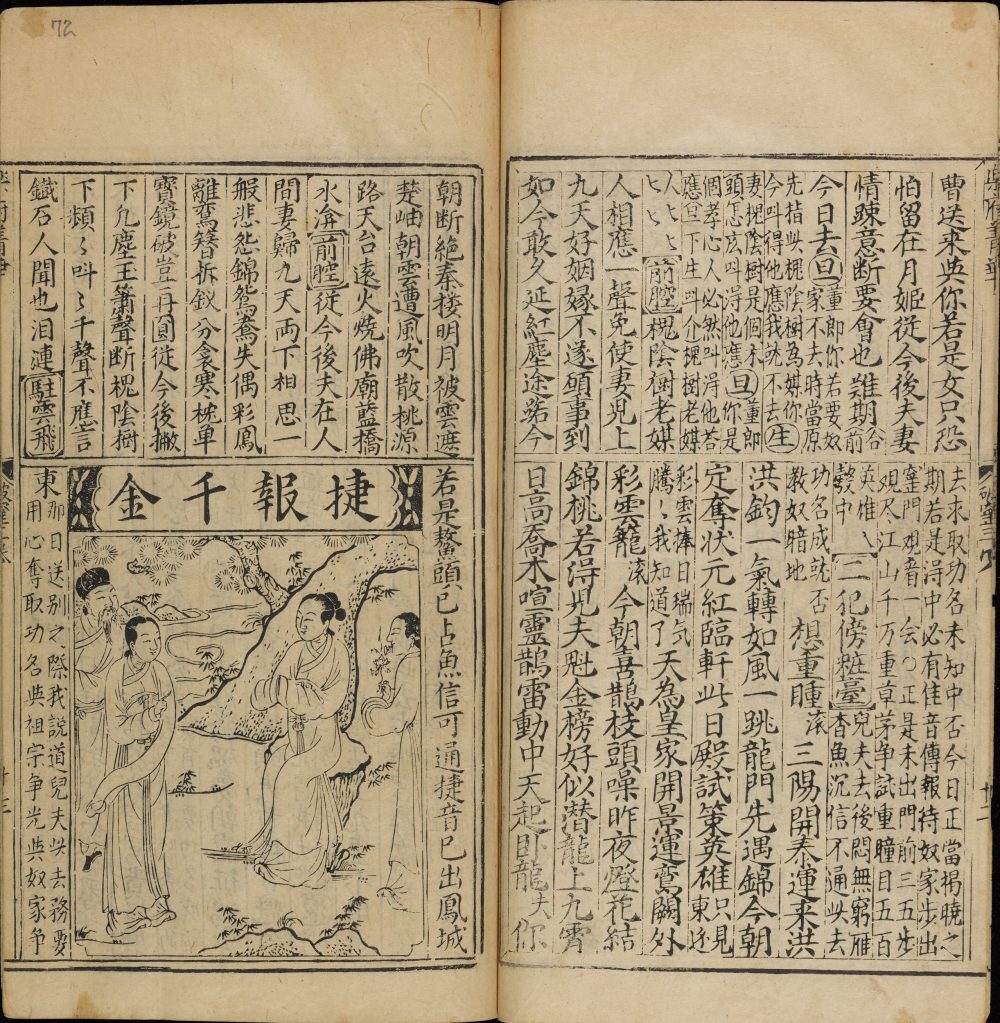 72
曹送來與你若是女只恐
怕留在月姬從今後夫妻
情踈意断要會也難期合前
今日去旦董即你若要奴家不去時當原
先指此槐陰樹為媒你今叫得他應我就不去生
妻槐陰樹是個木頭怎広叫得他應旦董即你是
個孝心人必然叫得他若應旦下生叫介槐樹老媒
人匕匕匕前腔槐陰樹老媒
人相應一聲免使妻兒上
九天好姻緣不遂頭事到
如今敢久延紅塵途路今
朝断絶秦楼明月被雲遮
楚岫朝雲遭風吹散桃源
路天台遠火燒佛廟藍橋
水渰前腔從今後夫在人
間妻歸九天両下相思一
般悲怨錦鴛鴦失偶彩鳳
離鸞簪拆釵分衾寒枕单
寳鏡破豈再圓從今後撇
下九塵王簫聲断槐陰樹
下頻〻叫〻千聲不應言
鐵石人聞也泪漣駐雲飛
去求取功名未知中否今日正當揭曉之
期若是得中必有佳音傳報待奴家步出
窒門觀音一会〇正是未出門前三五步
觀尽江山千万重草茅争試重瞳目五百
英雄入彀中二犯傍粧臺兒夫去後悶無窮雁
杳魚沉信不通此去功名成就否
教奴暗地想重瞳滚三陽開泰運来洪
洪鈞一氣轉如風一跳龍門先遇錦今朝
定奪状元紅臨軒此日殿試策英雄東𨑳只見
彩雲棒日瑞気騰〻我知道了天為皇家開景運鸞闕外
彩雲籠滚今朝喜鵲枝頭噪昨夜燈花結
錦桃若得兒夫魁金榜好似潜龍上九霄
日高喬木喧靈鵲雷動中天起卧龍夫你
若是鰲頭已占魚信可通捷音已出鳳城
捷報千金
東那日送别之際我説道兒夫此去務要
用心奪取功名與祖宗争光與奴家争